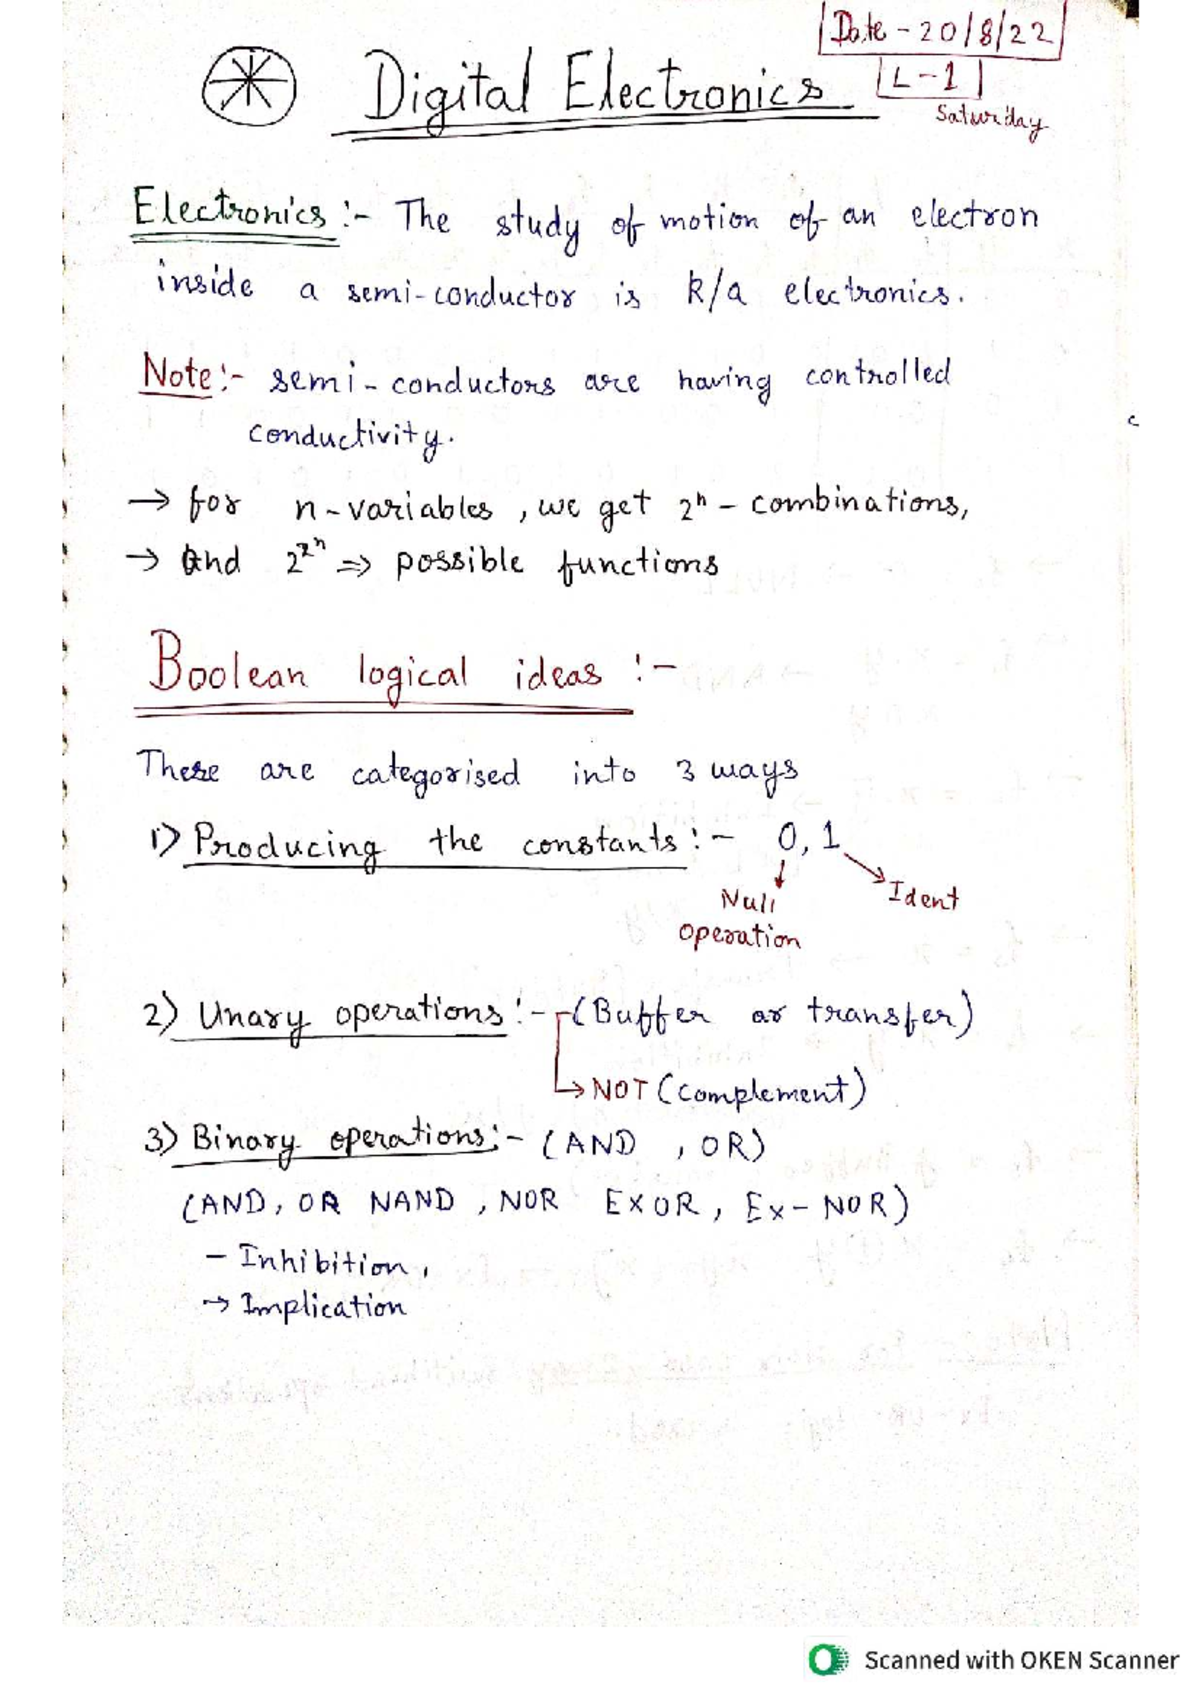 Date - 20/8/22
L-1
Saturday
Digital Electronics
Electronics :- The study of motion of an electron
inside a semi-conductor is k/a electronics.
Note:- semi-conductors are having controlled
conductivity.
→ for n-variables, we get 2ⁿ - combinations,
→ And 2^2ⁿ => possible functions
Boolean logical ideas :-
These are categorised into 3 ways
1) Producing the constants :- 0, 1
Null Ident
operation
2) Unary operations :- (Buffer or transfer)
→ NOT (complement)
3) Binary operations:- (AND , OR)
(AND, OR NAND , NOR EXOR, Ex-NOR)
- Inhibition,
→ Implication
Scanned with OKEN Scanner